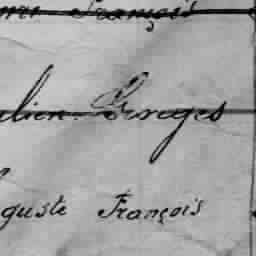 François
lien Georges
guste François